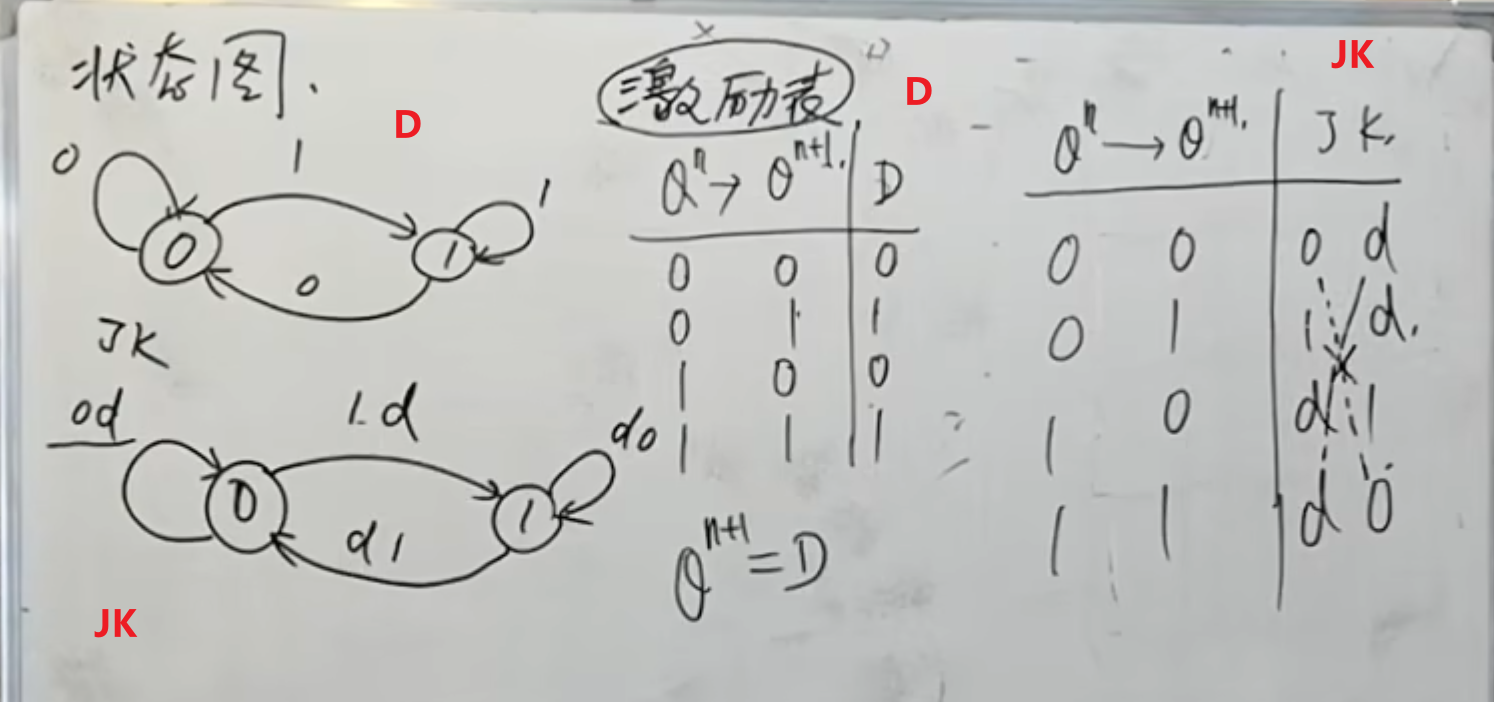 状态图.
D
0
1
1
0
0
1
JK
0d
1d
d0
0
1
d1
JK
激励表
D
Qⁿ → Qⁿ⁺¹. D
0 0 0
0 1 1
1 0 0
1 1 1
Qⁿ⁺¹ = D
JK
Qⁿ → Qⁿ⁺¹. J K.
0 0 0 d
0 1 1 d.
1 0 d 1
1 1 d 0